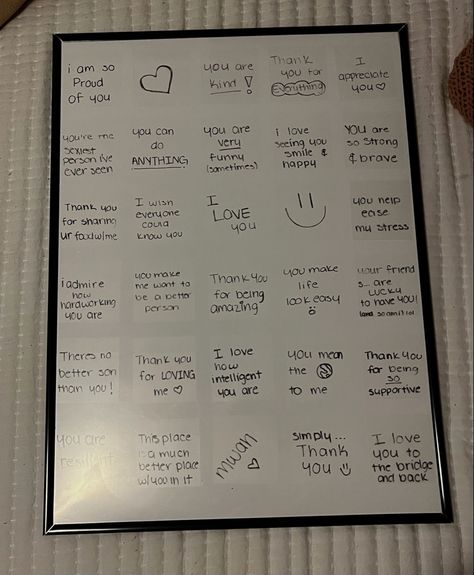 i am so
Proud
of you
you are
kind!
Thank
you for
everything
I
appreciate
you
you're the
sexiest
person i've
ever seen
you can
do
ANYTHING
you are
very
funny
(sometimes)
i love
seeing you
smile &
happy
you are
so strong
& brave
Thank you
for sharing
ur food w/me
I wish
everyone
could
know you
I
LOVE
you
you help
ease
my stress
i admire
how
hardworking
you are
you make
me want to
be a better
person
Thank you
for being
amazing
you make
life
look easy
your friend
s... are
LUCKY
to have you!
(and so am i) lol
Theres no
better son
than you!
Thank you
for LOVING
me
I love
how
intelligent
you are
you mean
the
to me
Thank you
for being
so
supportive
you are
resilient
This place
is a much
better place
w/you in it
mwah
simply...
Thank
you
I love
you to
the bridge
and back